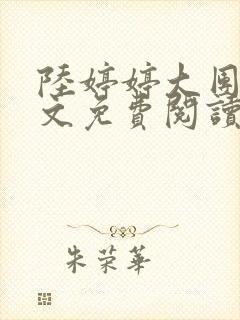 陸婷婷大團
文免費閱讀
朱荣華